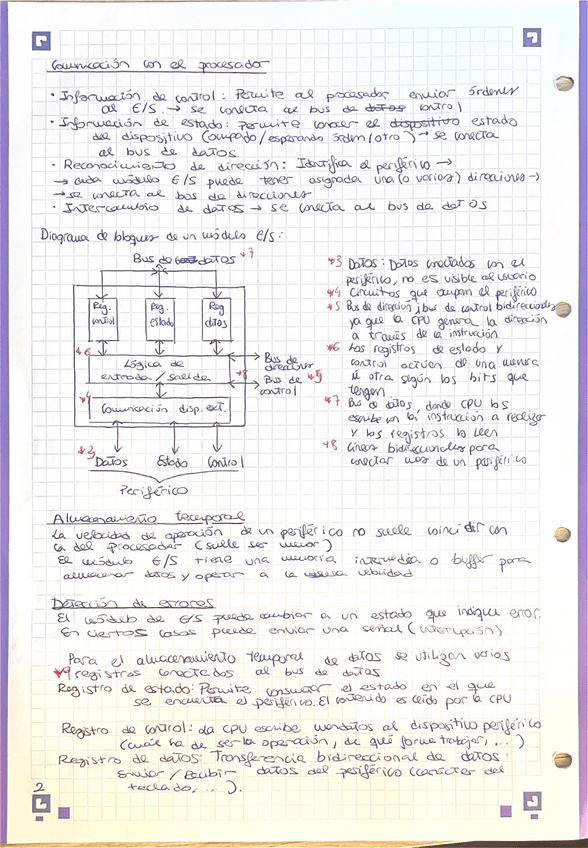 Comunicación con el procesador
· Información de control: Permite al procesador enviar órdenes
al E/S. → Se conecta al bus de datos control
· Información de estado: permite conocer el dispositivo estado
del dispositivo (ocupado/esperando órdem/otro) → se conecta
al bus de datos
· Reconocimiento de dirección: Identifica el periférico →
→ cada módulo E/S puede tener asignada una (o varias) direcciones →
→ se conecta al bus de direcciones
· Intercambio de datos → se conecta al bus de datos
Diagrama de bloques de un módulo E/S:
Bus de datos *7
Reg. control
Reg. estado
Reg. datos
*6
Lógica de
entrada / salida
*8
Bus de direcciones
Bus de control *5
*4
Comunicación disp. ext.
*3
Datos Estado Control
Periférico
*3 Datos: Datos conectados con el
periférico, no es visible al usuario
*4 Circuitos que ocupan el periférico
*5 Bus de dirección y bus de control bidireccionales
ya que la CPU genera la dirección
a través de la instrucción.
*6 Los registros de estado y
control actúen de una manera
u otra según los bits que
tengan.
*7 Bus de datos, donde CPU los
escribe con la instrucción a realizar
y los registros lo leen
*8 Líneas bidireccionales para
conectar mas de un periférico
Almacenamiento temporal
La velocidad de operación de un periférico no suele coincidir con
la del procesador (suele ser menor)
El módulo E/S tiene una memoria intermedia o buffer para
almacenar datos y operar a la misma velocidad
Detección de errores
El módulo de E/S puede cambiar a un estado que indique error.
En ciertos casos puede enviar una señal (interrupción)
Para el almacenamiento temporal de datos se utilizan varios
*9 registros conectados al bus de datos
Registro de estado: Permite consultar el estado en el que
se encuentra el periférico. El contenido es leído por la CPU
Registro de control: La CPU escribe mandatos al dispositivo periférico
(cuál ha de ser la operación, de qué forma trabajar, ...)
Registro de datos: Transferencia bidireccional de datos:
Enviar / Recibir datos del periférico (carácter del
teclado, ...).
2